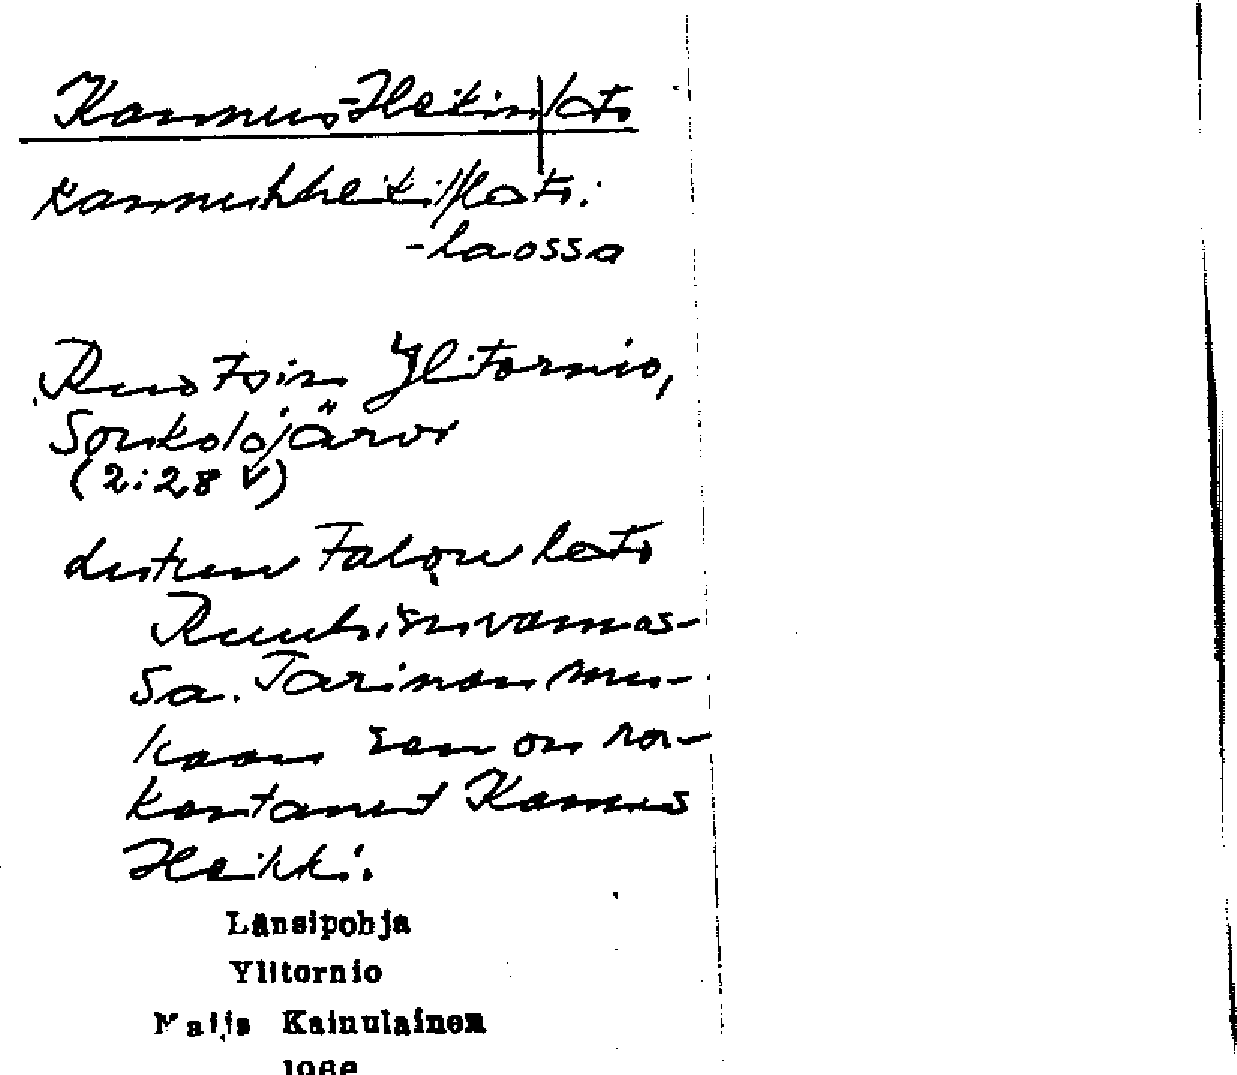 Kannus-Heikin|lato
kannuhheikil/lato:
-laossa
Ruotsin Ylitornio,
Soukolojärvi
(2:28 V)
talon lato
Ruuhisenvammas-
sa. Tarinan mu-
kaan sen on ra-
kentanut Kannus
Heikki.
Länsipohja
Ylitornio
Maija Kainulainen